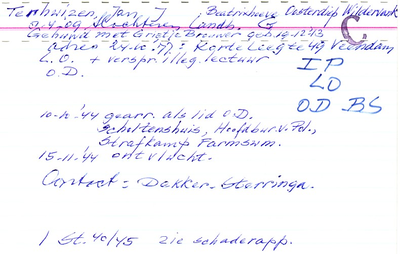 Tenhuizen, Jan, J. Beatrixhoeve Oosterdiep Wildervank
Slochteren, Landb. G
C
Gehuwd met Grietje Brouwer geb. 19-12-13
adres 24-10-77: Korte Leegte 49 Veendam
L.O. + verspr. illeg. lectuur
O.D.
IP
LO
OD BS
10-11-'44 gearr. als lid O.D.
Scholtenshuis, Hoofdbur. v. Pol.,
Strafkamp Farmsum.
15-11-'44 ontvlucht.
Contact: Dekker-Sterringa.
1 St. 40/45 zie schaderapp.